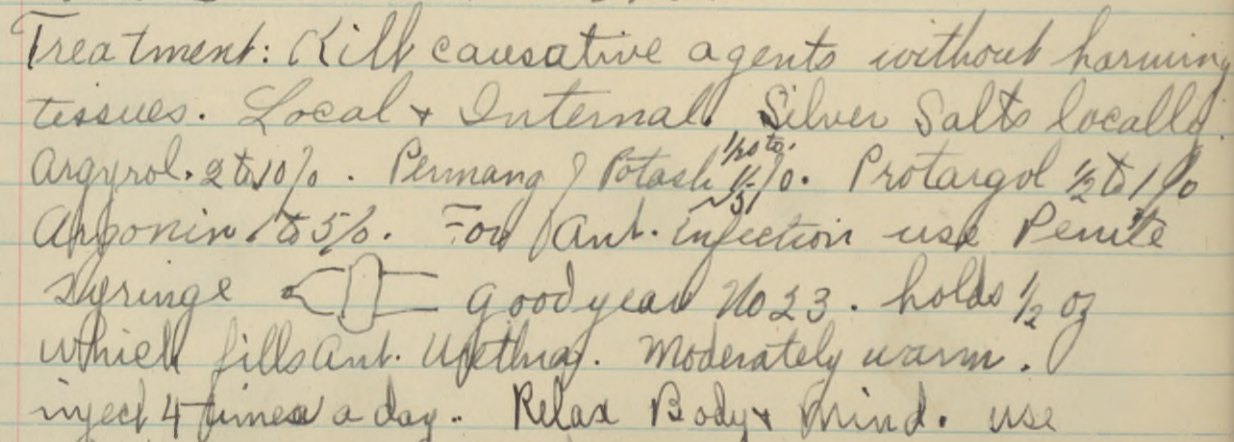 Treatment: Kill causative agents without harming
tissues. Local + Internal. Silver Salts locally.
Argyrol. 2 to 10%. Permang of Potash 1/20 to %. Protargol ½ to 1%
Argonin 1 to 5%. For Ant. injection use Penile
Syringe Goodyear No 23. holds ½ oz
which fills Ant. Urethra. Moderately warm.
inject 4 times a day. Relax Body + Mind. use